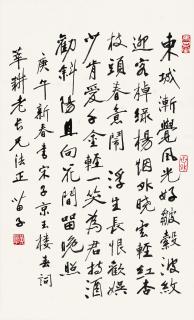 東城漸覺風光好皺縠波紋
迎客棹綠楊烟外曉雲輕紅杏
枝頭春意鬧 浮生長恨歡娛
少肯愛千金輕一笑為君持酒
勸斜陽且向花間留晚照
庚午新春書宋子京玉樓春詞
耕老長兄法正 苗子